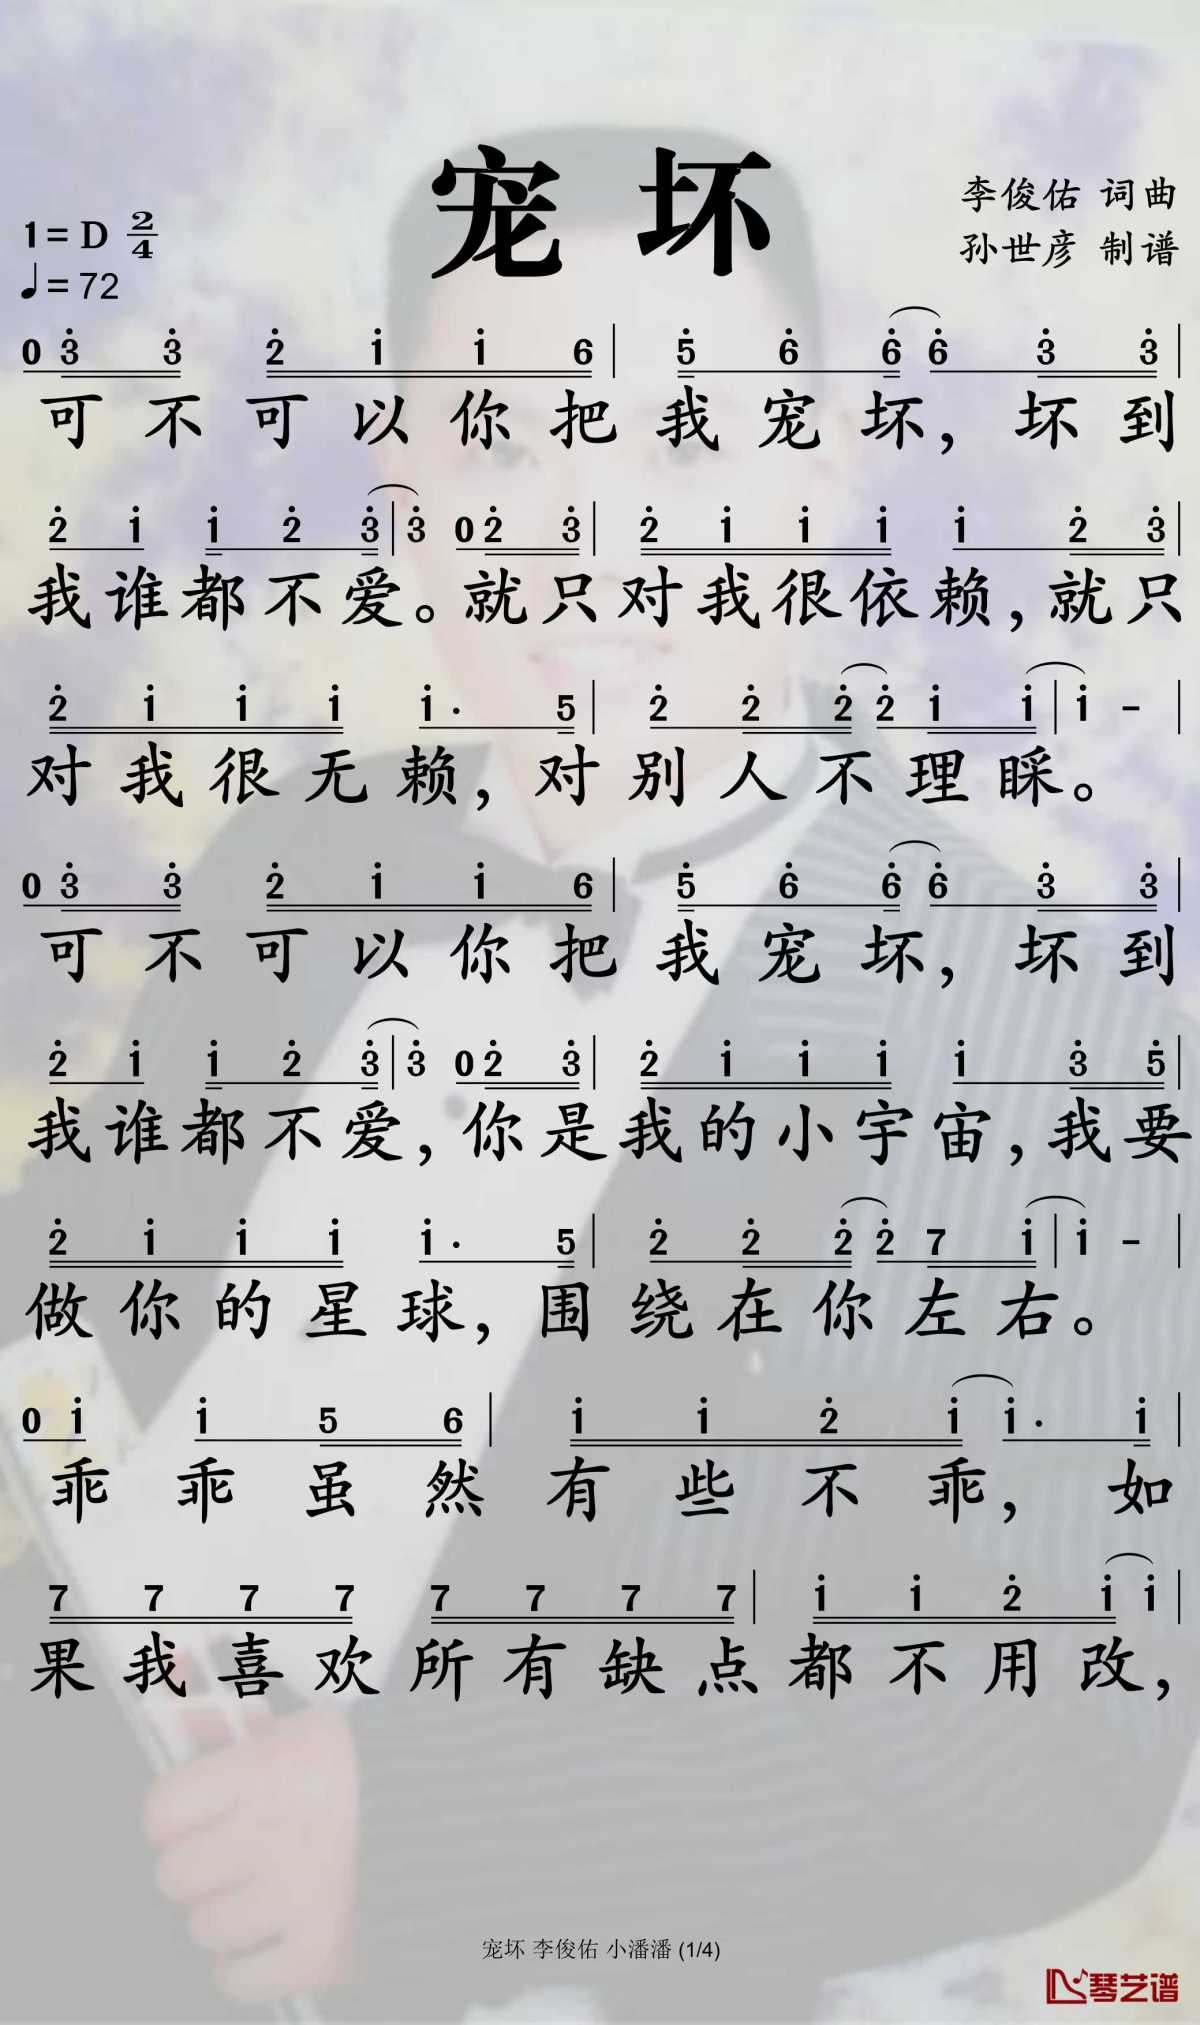 宠坏
李俊佑 词曲
孙世彦 制谱
1=D 2/4
♩=72
0 3̇ 3̇ 2̇ 1̇ 1̇ 6 | 5̇ 6̇ 6̇ 6̇ 3̇ 3̇ |
可不可以你把我宠坏,坏到
2̇ 1̇ 1̇ 2̇ 3̇ | 3̇ 0 2̇ 3̇ | 2̇ 1̇ 1̇ 1̇ 1̇ 2̇ 3̇ |
我谁都不爱。就只对我很依赖,就只
2̇ 1̇ 1̇ 1̇ 1̇· 5 | 2̇ 2̇ 2̇ 2̇ 1̇ 1̇ | 1̇ - |
对我很无赖,对别人不理睬。
0 3̇ 3̇ 2̇ 1̇ 1̇ 6 | 5̇ 6̇ 6̇ 6̇ 3̇ 3̇ |
可不可以你把我宠坏,坏到
2̇ 1̇ 1̇ 2̇ 3̇ | 3̇ 0 2̇ 3̇ | 2̇ 1̇ 1̇ 1̇ 1̇ 3̇ 5̇ |
我谁都不爱,你是我的小宇宙,我要
2̇ 1̇ 1̇ 1̇ 1̇· 5 | 2̇ 2̇ 2̇ 2̇ 7 1̇ | 1̇ - |
做你的星球,围绕在你左右。
0 1̇ 1̇ 5 6 | 1̇ 1̇ 2̇ 1̇ 1̇· 1̇ |
乖乖虽然有些不乖,如
7 7 7 7 7 7 7 7 | 1̇ 1̇ 2̇ 1̇ 1̇ |
果我喜欢所有缺点都不用改,
宠坏 李俊佑 小潘潘 (1/4)
琴艺谱